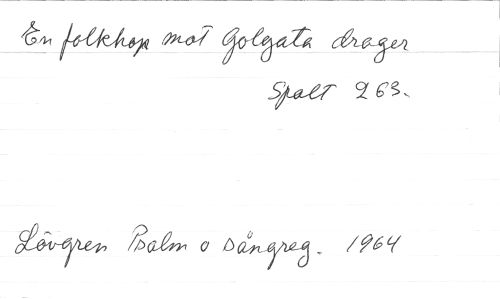 En folkhop mot Golgata drager
Spalt 263.
Lövgren Psalm o sångreg. 1964